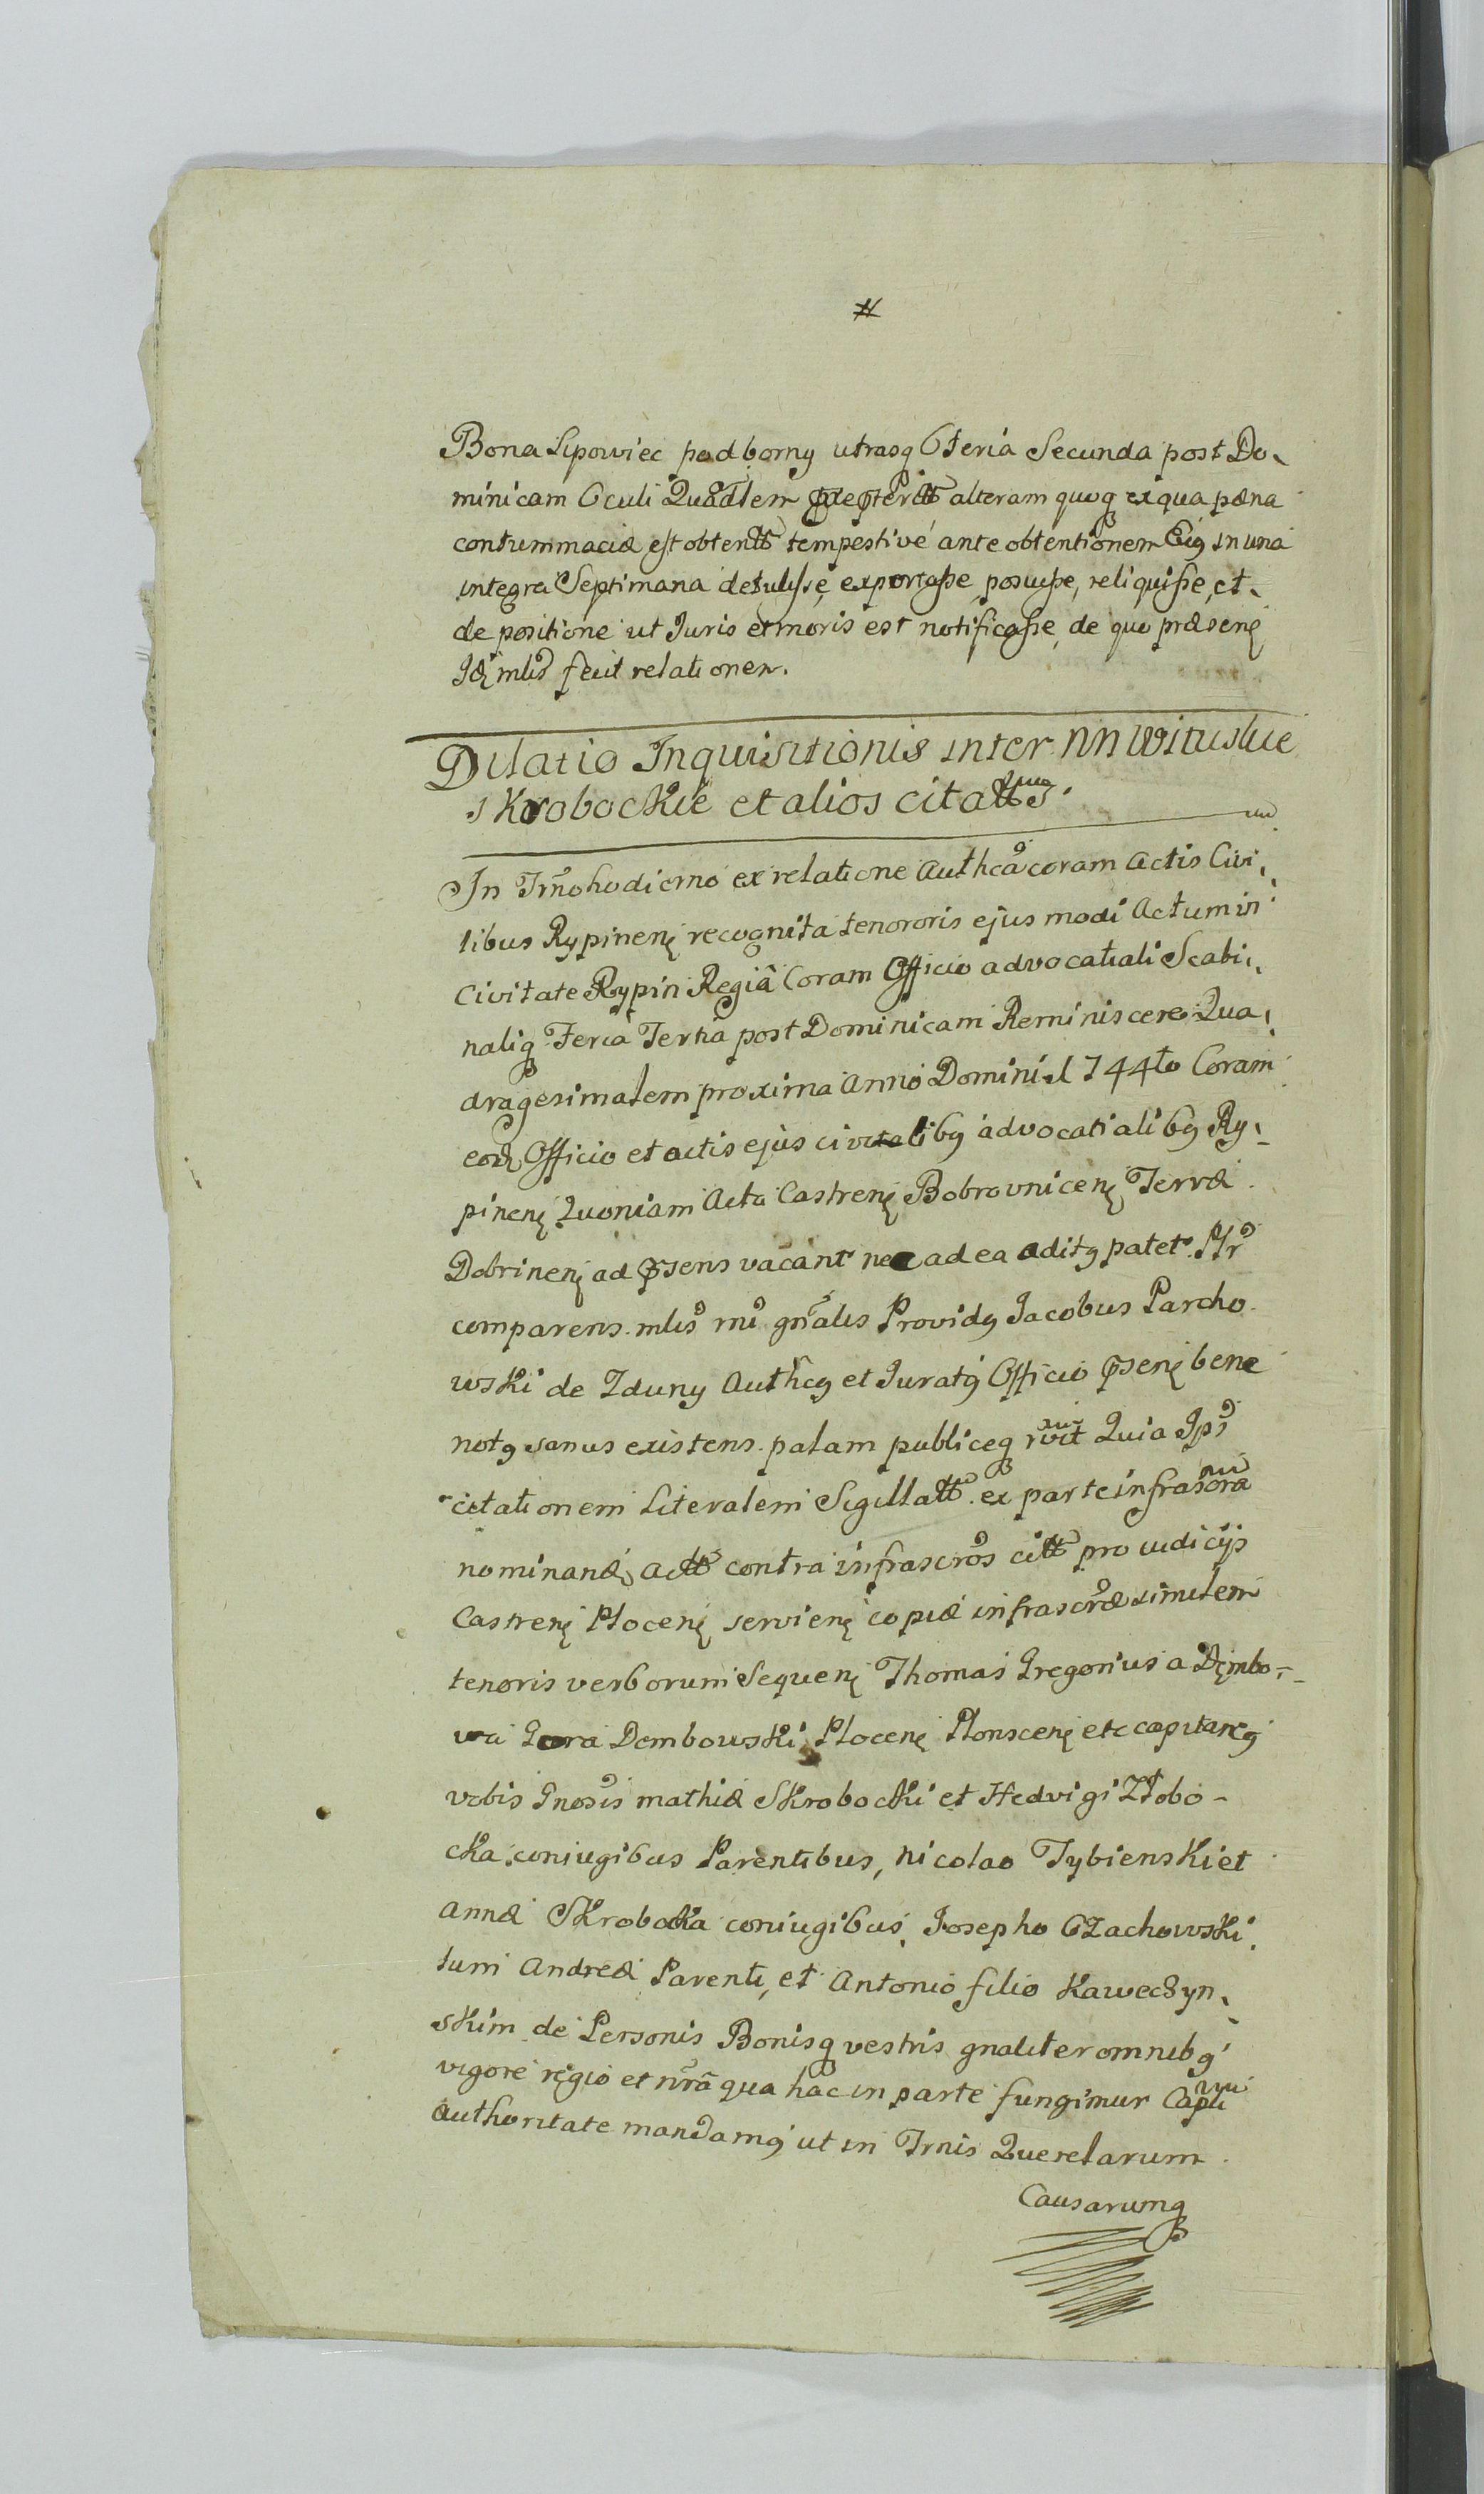 #
Bona Lipowiec podborny utrasq Feria Secunda post Do-
minicam Oculi Quadlem alteram quoq ex qua pæna
contummaciæ est obtentt tempestivé ante obtentionem Eiq in una
integra Septimana detulisse, exportasse, posuisse, reliquisse, et
de positione ut Juris et moris est notificasse, de quo præsenę
Idę mlis fecit relationem.
Dilatio Inquisitionis inter NN Wituskie
skrobockie et alios citattos
In Trno hodierno ex relatione Authca coram Actis Civi-
libus Rypinenę recognita tenororis ejus modi Actum in
Civitate Rypin Regiâ Coram Officio advocatiali Scabi-
naliq Feria Tertia post Dominicam Reminiscere Qua-
dragesimalem proxima Anno Domini 1744to Coram
eodę Officio et actis ejus civitalibq advocatialibq Ry-
pinenę Quoniam Acta Castrenę Bobrovnicenę Terræ
Dobrinenę ad psens vacant nec ad ea aditq patet. Ptr
comparens mlis rni gnalis Providq Jacobus Parcho
wski de Zduny Authcq et Juratq Officio psenę bene
notq sanus existens palam publiceq rvit Quia Ips
citationem Literalem Sigillatt ex parte infrascra
nominandę Actt contra infrascros citt pro iudicijs
Castrenę Plocenę servienę copiæ infrascræ similem
tenoris verborum Sequenę Thomas Gregorius a Dęmbo-
wa Gora Dembowski Plocenę Plonscenę etc capitaneq
vobis Gnosis mathiæ Skrobocki et Hedvigi Złobo-
cka coniugibus Parentibus, Nicolao Tybienski et
annæ Skrobocka coniugibus, Josepho Czachowski,
tum Andreæ Parenti, et Antonio filio Kaweczyn-
skim de Personis Bonisq vestris gnaliter omnibq
vigore regio et nrâ qua hac in parte fungimur Capli
authoritate mandamq ut in Trnis Querelarum
Causarumq